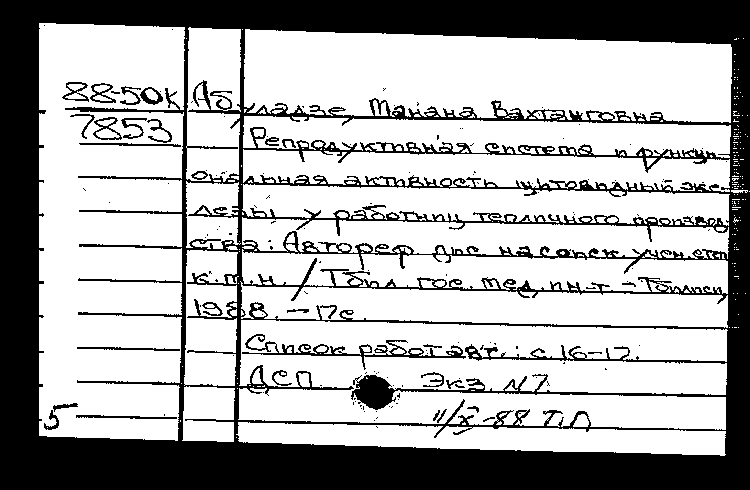 88-50к Абуладзе, Манана Вахтанговна
7853 Репродуктивная система и функци-
ональная активность щитовидный же-
лезы у работниц тепличного производ-
ства: Автореф. дис. на соиск. учен. степ.
к.м.н. / Тбил. гос. мед. ин-т. - Тбилиси,
1988. - 17с.
Список работ авт.: с. 16-17.
ДСП Экз. N7.
5 11/X-88 Т.П